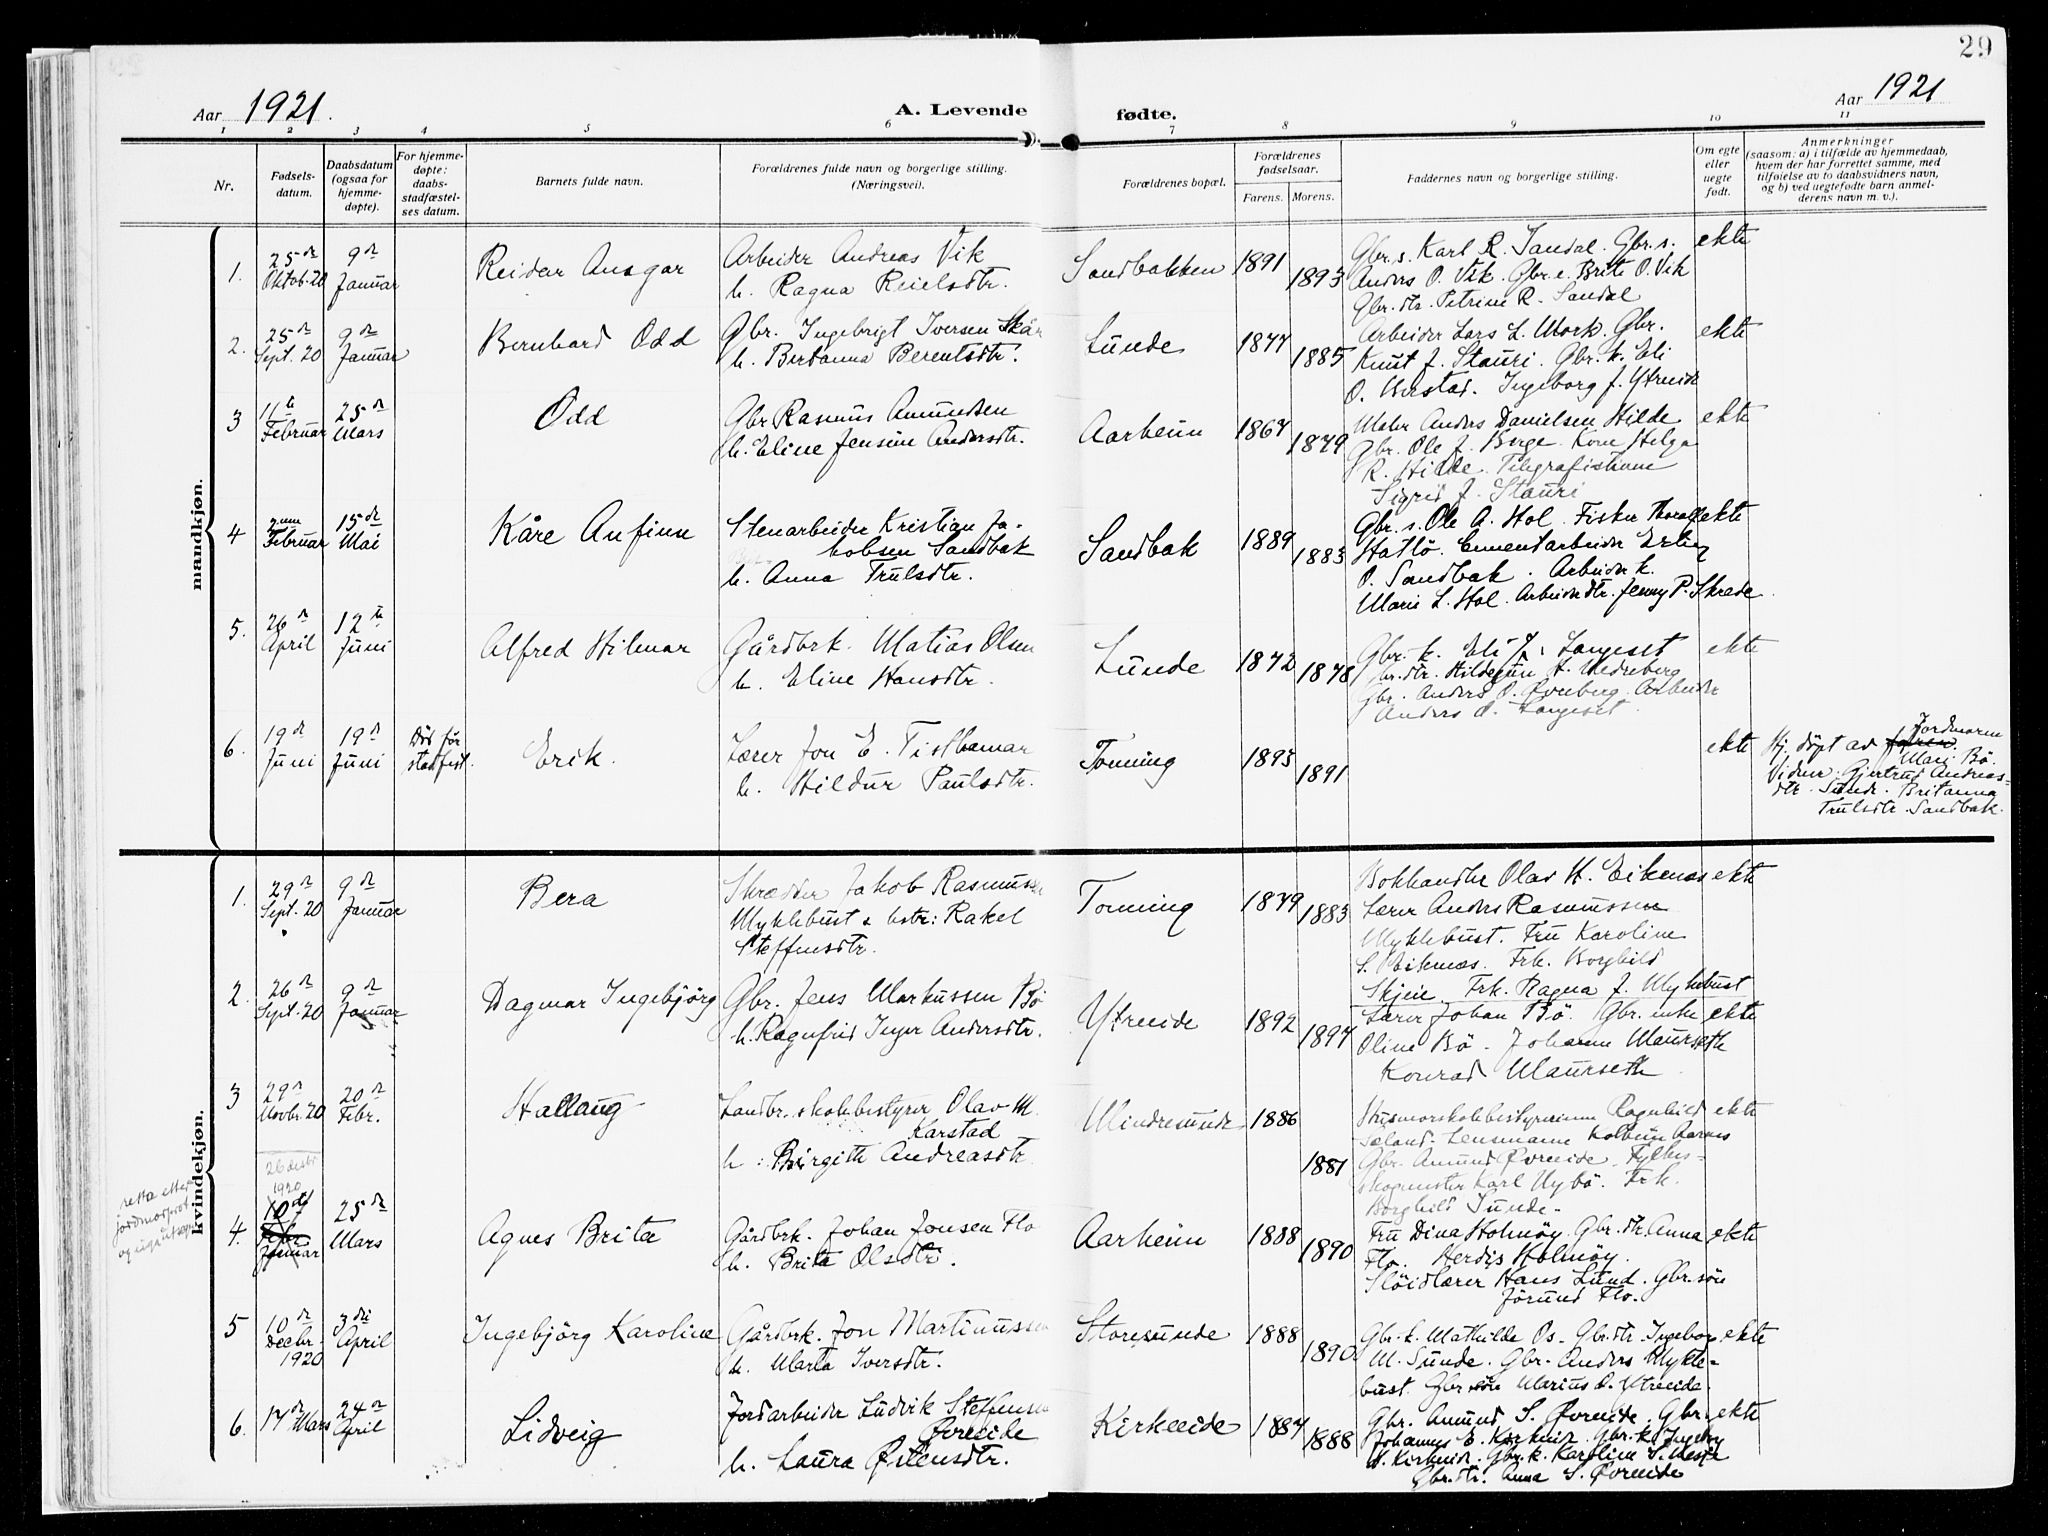 29
Aar 1921.
A. Levende fødte.
Aar 1921
1 2 3 4 5 6 7 8 9 10 11
Nr.
Fødsels-
datum.
Daabsdatum
(ogsaa for
hjemme-
døpte).
For hjemme-
døpte:
daabs-
stadfæstel-
ses datum.
Barnets fulde navn.
Forældrenes fulde navn og borgerlige stilling.
(Næringsvei).
Forældrenes bopæl.
Forældrenes
fødselsaar.
Farens. Morens.
Faddernes navn og borgerlige stilling.
Om egte
eller
uegte
født.
Anmerkninger
(saasom: a) i tilfælde av hjemmedaab,
hvem der har forrettet samme, med
tilføielse av to daabsvidners navn,
og b) ved uegtefødte barn anmel-
derens navn m. v.).
mandkjøn.
1.
25de
Oktob. 20
9de
Januar
Reidar Ansgar
Arbeider Andreas Vik
h. Ragna Reielsdtr.
Sandbakken
1891
1893
Gbr.s. Karl R. Sandal. Gbr. s.
Anders O. Vik. Gbr.e. Brite O. Vik
Gbr. dtr. Petrine R. Sandal
ekte
2.
25de
Sept. 20
9de
Januar
Bernhard Odd
Gbr. Ingebrigt Iversen Skår
h. Bertanna Berentsdtr.
Lunde
1877
1885
Arbeider Lars L. Mork. Gbr.
Knut J. Stauri. Gbr. k. Eli
O. Ingeborg J. Ytreeide
ekte
3
11te
Februar
25de
Mars
Odd
Gbr Rasmus Amundsen
h. Eline Jensine Andersdtr.
Aarheim
1867
1879
Maler Anders Danielsen Hilde
Gbr. Ole J. Berge. Kone Helga
R. Hilde. Telegrafistinne
Sigrid J. Stauri
ekte
4
Februar
15de
Mai
Kåre Anfinn
Stenarbeider Kristian Ja-
kobsen Sandbak
h. Anna Trulsdtr.
Sandbak
1889
1883
Gbr. s. Ole A. Hol. Fisker Thoralf
Hatlö. Cementarbeider Erling
O. Sandbak. Arbeider k.
Marie L. Hol. Arbeider dtr. Jenny P. Skrede.
ekte
5.
26de
April
12te
Juni
Alfred Hilmar
Gårdbrk. Matias Olsen
h. Eline Hansdtr.
Lunde
1872
1878
Gbr. k. Eli J. Langeset
Gbr.dtr. Hildegun H. Nedreberg
Gbr. Anders O. Övreberg. Arbeider
Anders A. Langeset.
ekte
6.
19de
Juni
19de
Juni
Död för
stadfest.
Erik.
Lærer Jon E. Tisthamar
h. Hildur Paulsdtr.
Tonning
1893
1891
ekte
Hj. döpt av faren Jordmoren
Mari Bö.
Vidner: Gjertrud Andreas-
dtr. Sunde. Britanna
Trulsdtr. Sandbak.
kvindekjøn.
1.
29de
Sept. 20
9de
Januar
Bera
Skrædder Jakob Rasmussen
Myklebust & hstr: Rakel
Steffensdtr.
Tonning
1879
1883
Bokhandler Olav H. Eikenæs
Lærer Anders Rasmussen
Myklebust. Fru Karoline
S. Eiknæs. Frk. Borghild
Skjeie. Frk. Ragna J. Myklebust
ekte
2.
26de
Sept. 20
9de
Januar
Dagmar Ingebjörg
Gbr. Jens Markussen Bö
h. Ragnfrid Inger Andersdtr.
Ytreeide
1892
1897
Lærer Johan Bö. Gbr. enke
Oline Bö. Johanne Maurseth
Konrad Maurseth
ekte
3
29de
Novbr. 20
20de
Febr.
Hallaug
Landbr. skolebestyrer Olav M.
Karstad
h: Birgith Andreasdtr.
Mindresunde
1886
1881
Husmorskolebestyrerinne Ragnhild
Sæland. Lensmann Kolbein Aarnes
Gbr. Amund Övreeide. Fylkes-
skogmester Karl Nybö. Frk.
Borghild Sunde.
ekte
retta etter
jordmorprot.
4.
26 desbr
1920
10de
Febr
Januar
25de
Mars
Agnes Brita
Gårdbrk. Johan Jonsen Flo
h. Brita Olsdtr.
Aarheim
1888
1890
Fru Dina Holmöy. Gbr. dtr. Anna
Flo. Herdis Holmöy.
Slöidlærer Hans Lund. Gbr. sön
Jörund Flo.
ekte
5
10de
Decbr.
1920
3die
April
Ingebjörg Karoline
Gårdbrk. Jon Martinussen
h. Marta Iversdtr.
Storesunde
1888
1890
Gbr. k. Mathilde Os. Gbr. dtr. Ingeborg
M. Sunde. Gbr. Anders Mykle-
bust. Gbr sön Marius A. Ytreeide.
ekte
6.
17de Mars
24de
April
Lidveig
Jordarbeider Ludvik Steffensen
Övreeide
h. Laura Östensdtr.
Kirkeeide
1887
1888
Gbr. Amund S. Övreeide. Gbr.
Johannes E. Kirkeide. Gbr. k. Ingeborg
A. Kirkeide. Gbr. k. Karoline S.
Gbr. dtr. Anna S. Övreeide
ekte